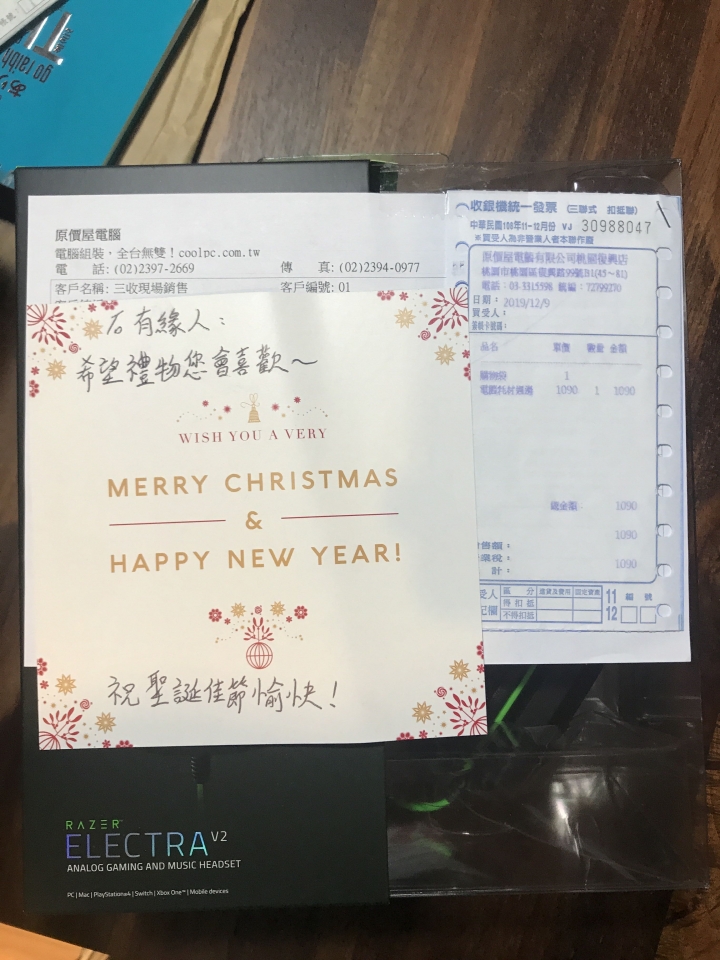 go
原價屋電腦
電腦組裝，全台無雙！coolpc.com.tw
電 話: (02)2397-2669 傳 真: (02)2394-0977
客戶名稱: 三收現場銷售 客戶編號: 01
收銀機統一發票 (三聯式 扣抵聯)
中華民國108年11-12月份 VJ 30988047
※買受人為非營業人者本聯作廢
原價屋電腦有限公司桃園復興店
桃園市桃園區復興路99號B1(45~61)
電話:03-3315598 統編:72799270
日期: 2019/12/9
買受人:
品名 單價 數量 金額
購物袋 1
電腦耗材週邊 1090 1 1090
總金額 1090
售額: 1090
業稅:
計: 1090
受人 區分 進貨及費用 固定資產
得扣抵
記欄 不得扣抵
11
12
編號
有緣人:
希望禮物您會喜歡~
WISH YOU A VERY
MERRY CHRISTMAS
&
HAPPY NEW YEAR!
祝聖誕佳節愉快!
RAZER™
ELECTRA V2
ANALOG GAMING AND MUSIC HEADSET
PC | Mac | PlayStation4 | Switch | Xbox One™ | Mobile devices